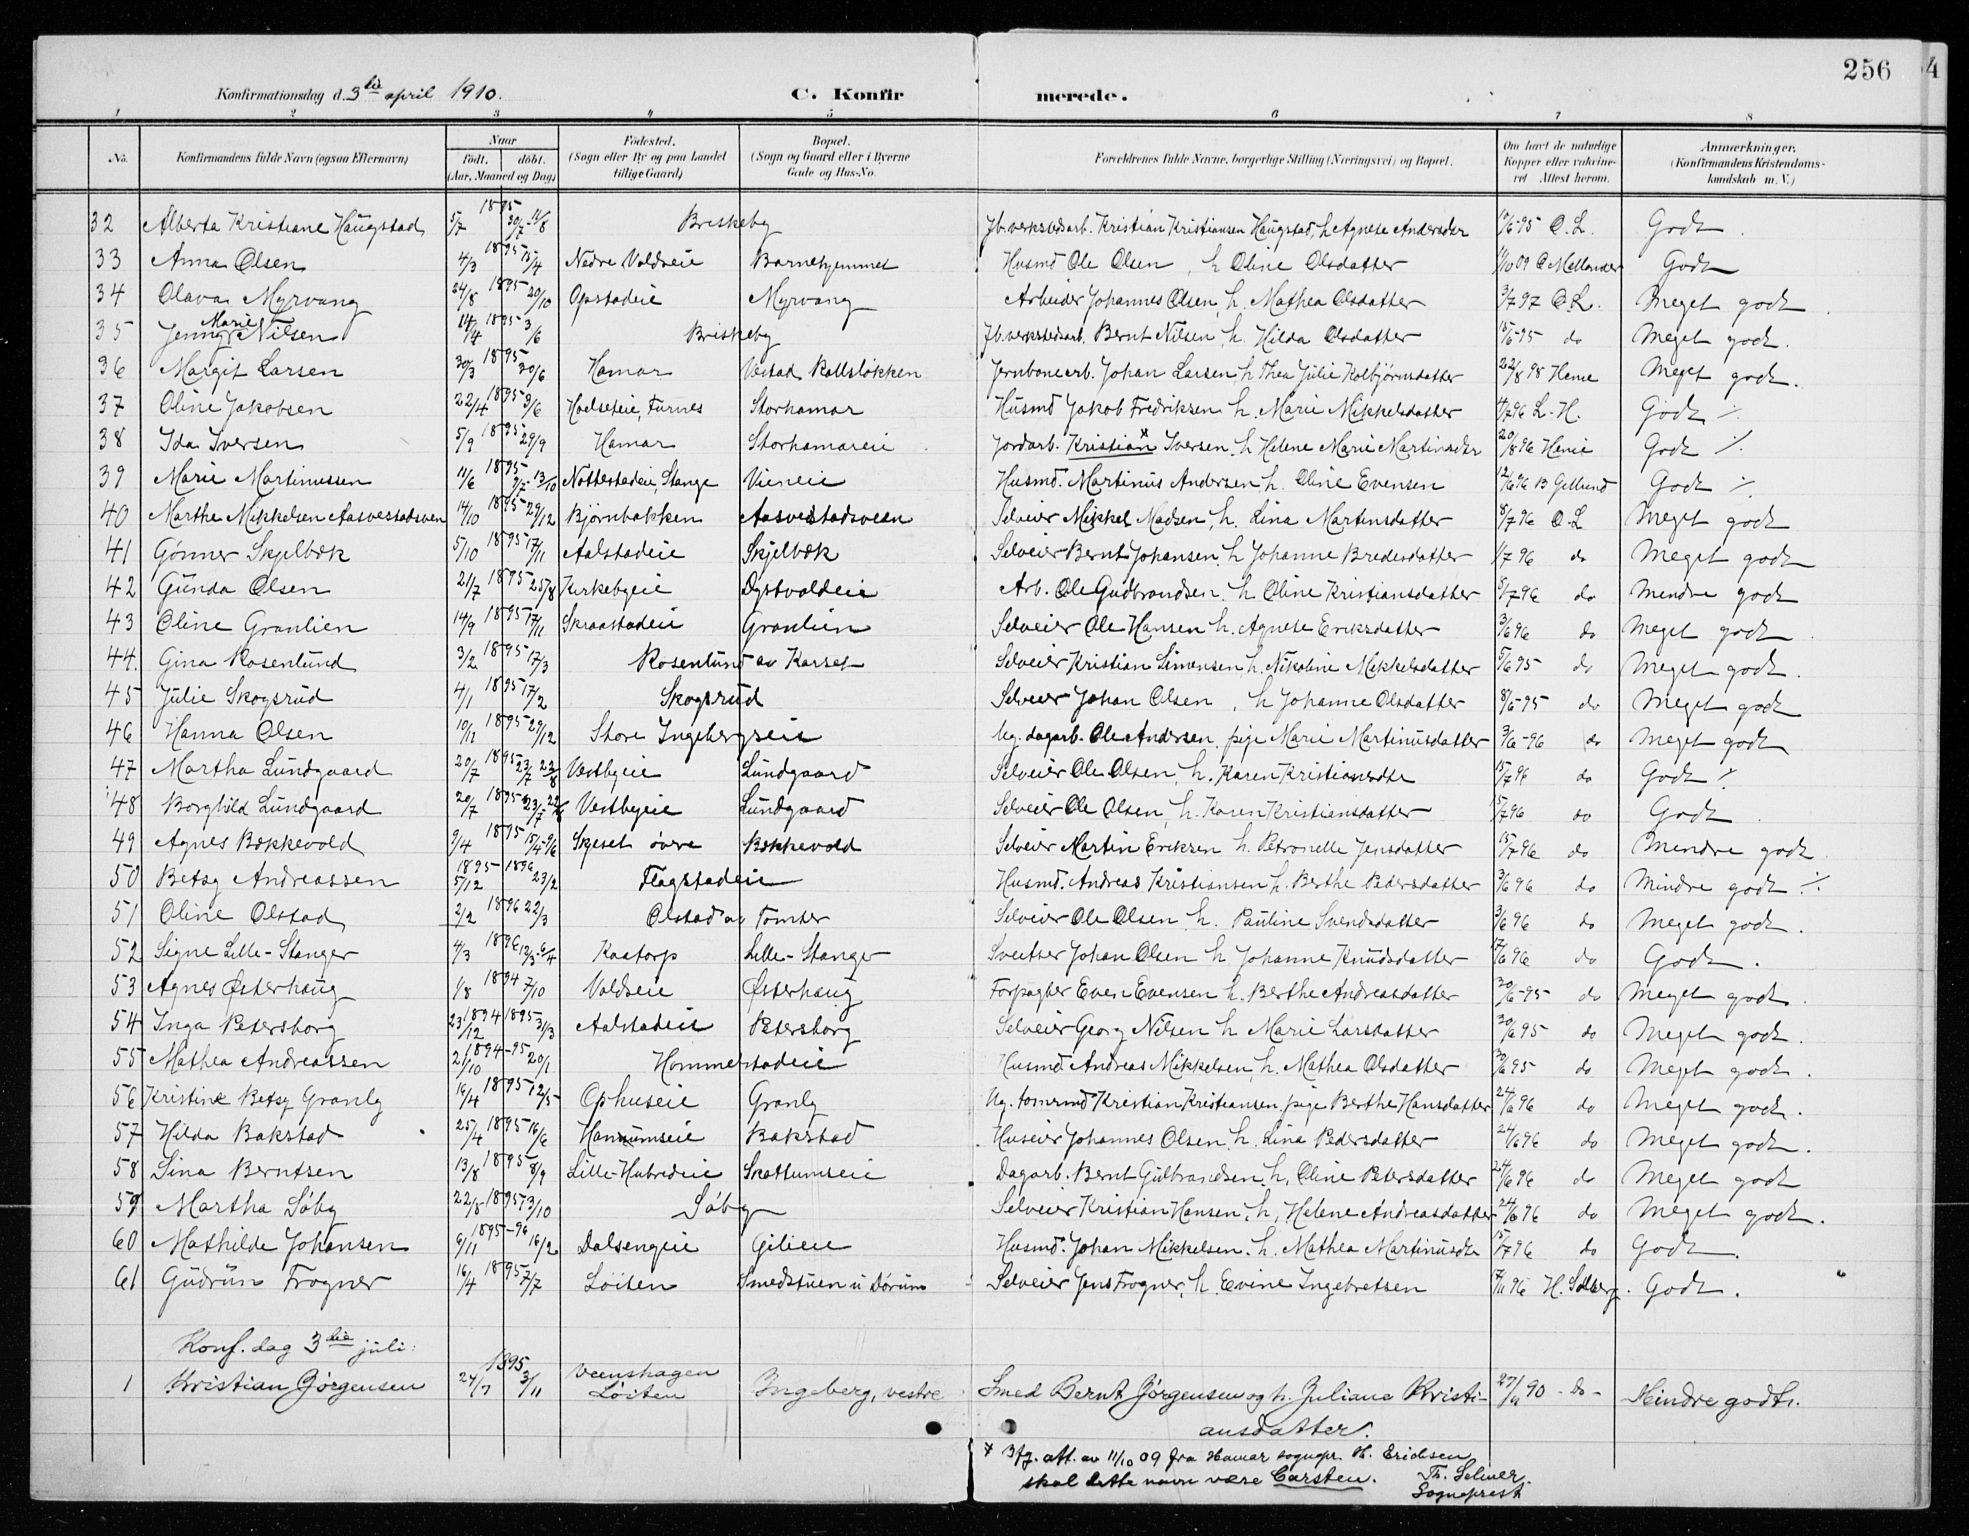 256 4
Konfirmationsdag d. 3die april 1910. C. Konfirmerede.
1 2 3 4 5 6 7 8
No. Konfirmandens fulde Navn (ogsaa Efternavn) Naar født. døbt. (Aar, Maaned og Dag) Fødested. (Sogn eller By og paa Landet tillige Gaard) Bopæl. (Sogn og Gaard eller i Byerne Gade og Hus-No. Forældrenes fulde Navne, borgerlige Stilling (Næringsvei) og Bopæl. Om havt de naturlige Kopper eller vaksineret Attest herom. Anmærkninger. (Konfirmandens Kristendomskundskab m. V.)
32 Alberta Kristiane Haugstad 5/7 1895 20/7-11/8 Briskeby Jb.verkstedarb. Kristian Kristiansen Haugstad, h. Agnese Andersdtr 10/6-95 O.L. Godt.
33 Anna Olsen 4/3 1895 15/4 Nedre Voldseie Barnehjemmet Husmd Ole Olsen, h. Oline Olsdatter 11/10 09 O Mellander Godt
34 Olava Myrvang 24/8 1895 20/10 Opstadeie Myrvang Arbeider Johannes Olsen, h. Mathea Olsdatter 3/7 97 O.L. Meget godt.
35 Jenny Marie Nilsen 14/4 1895 3/6 Briskeby Jb.verkstedsarb. Bernt Nilsen, h. Hilda Olsdatter 15/6-95 do Meget godt.
36 Margit Larsen 30/3 1895 20/6 Hamar Vestad Kollsløkken Jernbanearb. Johan Larsen, h. Thea Julie Kolbjørnsdatter 22/8 98 Hame Meget godt.
37 Oline Jakobsen 22/4 1895 3/6 Hoelseteie, Furnes Storhamar Husmd Jakob Fredriksen h. Marie Mikkelsdatter 4/7 96 L.H. Godt ·/.
38 Ida Iversen 5/9 1895 29/9 Hamar Storhamareie Jordarb. Kristian* Iversen, h. Helene Marie Martinsdtr 20/8 96 Hame Godt ·/.
39 Marie Martinussen 11/6 1895 9/7-13/10 Nottestadeie, Stange Vieneie Husmd. Martinus Andersen h. Oline Evensen 12/6 96 B Gellund Godt ·/.
40 Marthe Mikkelsen Aasvestadsveen 14/10 1895 29/12 Bjørnbakken Aasvestadsveen Selveier Mikkel Madsen, h. Lina Martinsdatter 8/7 96 O.L Meget godt
41 Gønner Skjelbæk 5/10 1895 17/11 Aalstadeie Skjelbæk Selveier Bernt Johansen, h. Johanne Bredesdatter 1/7 96 do Meget godt
42 Gunda Olsen 21/7 1895 25/8 Kirkebyeie Dystvoldeie Arb. Ole Gudbrandsen h. Oline Kristiansdatter 8/7 96 do Mindre godt
43 Oline Granlien 14/9 1895 17/11 Skraastadeie Granlien Selveier Ole Hansen h. Agnete Eriksdatter 3/6 96 do Meget godt.
44. Gina Rosenlund 3/2 1895 17/3 Rosenlund av Karset Selveier Kristian Simensen, h. Nikoline Mikkelsdatter 5/6 95 do Meget godt.
45 Julie Skogsrud 4/1 1895 17/2 Skogsrud Selveier Johan Olsen, h. Johanne Olsdatter 8/6-95 do Meget godt
46 Hanna Olsen 10/12 1895 29/12 Store Ingebergseie Ug. dagarb. Ole Andersen, pige Marie Martinusdatter 3/6-96 do Meget godt
47 Martha Lundgaard 20/7 1895 23/7 22/8 Vestbyeie Lundgaard Selveier Ole Olsen, h. Karen Kristiansdtr 15/7 96 do Godt ·/.
48 Borghild Lundgaard 20/7 1895 23/7-22/8 Vestbyeie Lundgaard Selveier Ole Olsen, h. Karen Kristiansdatter 15/7 96 do Godt.
49 Agnes Bækkevold 9/4 1895 15/4-9/6 Skjeset øvre Bækkevold Selveier Martin Eriksen h. Petronelle Jensdatter 15/7 96 do Mindre godt.
50 Betsy Andreassen 5/12 1895-1896 23/2 Flagstadeie Husmd. Andreas Kristiansen h. Berthe Pedersdatter 3/6 96 do Mindre godt ·/.
51 Oline Olstad 2/2 1896 22/3 Olstad av Tomter Selveier Ole Olsen, h. Pauline Svendsdatter 3/6 96 do Meget godt.
52 Signe Lille-Stanger 4/3 1896 12/3-6/4 Kaatorp Lille-Stanger Sveitser Johan Olsen h. Johanne Knudsdatter 17/6 96 do Godt.
53 Agnes Østerhaug 1/8 1894 7/10 Voldseie Østerhaug Forpagter Even Evensen h. Berthe Andreasdatter 20/6-95 do Meget godt.
54 Inga Petersborg 23/12 1894 1895 3/3 Aalstadeie Petersborg Selveier Georg Nilsen h. Marie Larsdatter 20/6 95 do Meget godt.
55 Mathea Andreassen 21/10 1894-95 20/1 Hommerstadeie Husmd. Andreas Mikkelsen, h. Mathea Olsdatter 30/6 95 do Meget godt.
56 Kristine Betsy Granly 16/4 1895 12/5 Ophuseie Granly Ug. tømmermd Kristian Kristiansen, pige Berthe Hansdatter 24/6 96 do Meget godt.
57 Hilda Bakstad 25/4 1895 16/6 Hanumseie Bakstad Huseier Johannes Olsen h. Lina Pedersdatter 24/6 96 do Meget godt.
58 Lina Berntsen 13/8 1895 8/9 Lille-Hubredeie Skattumseie Dagarb. Bernt Gulbrandsen, h. Oline Petersdatter 24/6 96 do Meget godt
59 Martha Søby 22/8 1895 13/10 Søby Selveier Kristian Hansen, h. Helene Andreasdatter 24/6 96 do Meget godt.
60 Mathilde Johansen 6/11 1895-96 16/2 Dalsengeie Gilieie Husmd. Johan Mikkelsen, h. Mathea Martinusdtr 15/7 96 do Godt.
61 Gudrun Frogner 16/4 1895 7/7 Løiten Smedstuen u Dørum Selveier Jens Frogner, h. Evine Ingebretsen 7/11 96 H. Solberg. Godt.
Konf. dag 3die juli:
1 Kristian Jørgensen 24/7 1895 3/11 Veenshagen Løiten Ingeberg, vestre Smed Bernt Jørgensen og h. Juliane Kristi- 27/9 90 - do - Mindre godt.
ansdatter.
* Ifg. att. av 11/10 09 fra Hamar sognepr. H. Erichsen
skal dette navn være Carsten. Th. Selmer.
Sogneprest